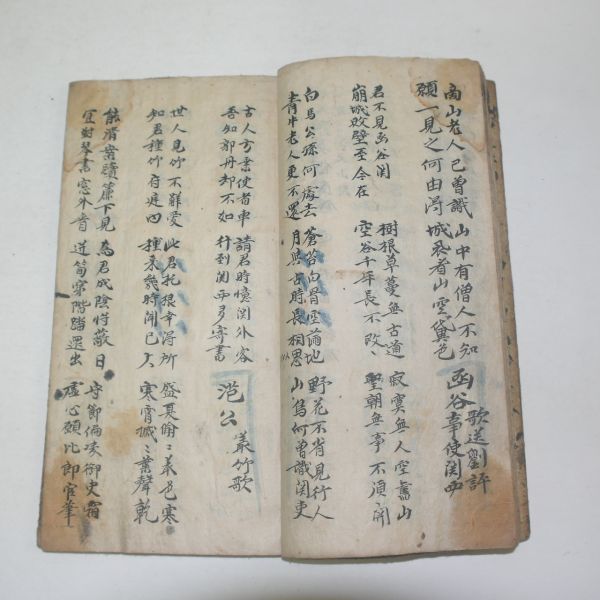 商山老人已曾識 山中有僧人不知 歌送劉許
願一見之何由得 城裏看山空黛色 函谷章使関西
君不見函谷関 樹根草蔓無古道 寂寞無人空舊山
崩城敗壁至今在 空谷千年長不改、 聖朝無事不須関
白馬公孫何處去 蒼苔白骨空滿地 野花不省見行人
青牛老人更不還 月與古時長相思 山鳥何曾識関吏
古人方乗使者車 請君時憶関外客
吾知郭丹却不如 行到関西多寄書 范公 叢竹歌
世人見竹不解愛 此君托根幸得所 盛夏翛〻叢色寒
知君種竹府庭内 種来幾時聞已大 寒宵摵〻葉聲乾
能清案牘簾下見 為君成陰将蔽日 守節偏凌御史霜
宜對琴書窓外看 迸筍穿階踏還出 虛心願比郎官筆